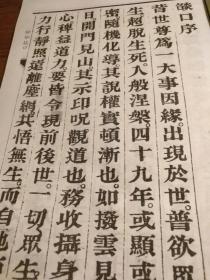 燄口序
昔世尊爲一大事因緣。出現於世。普欲眾
生超脫生死。入般涅槃。四十九年。或顯或
密。隨機化導。其說權實頓漸也。如撥雲見
日。開門見山。其示印呪觀道也。務收攝身
心。稗益道力。要皆令現前後世。一切眾生
力行靜照。這離塵網。共悟無生。而自他